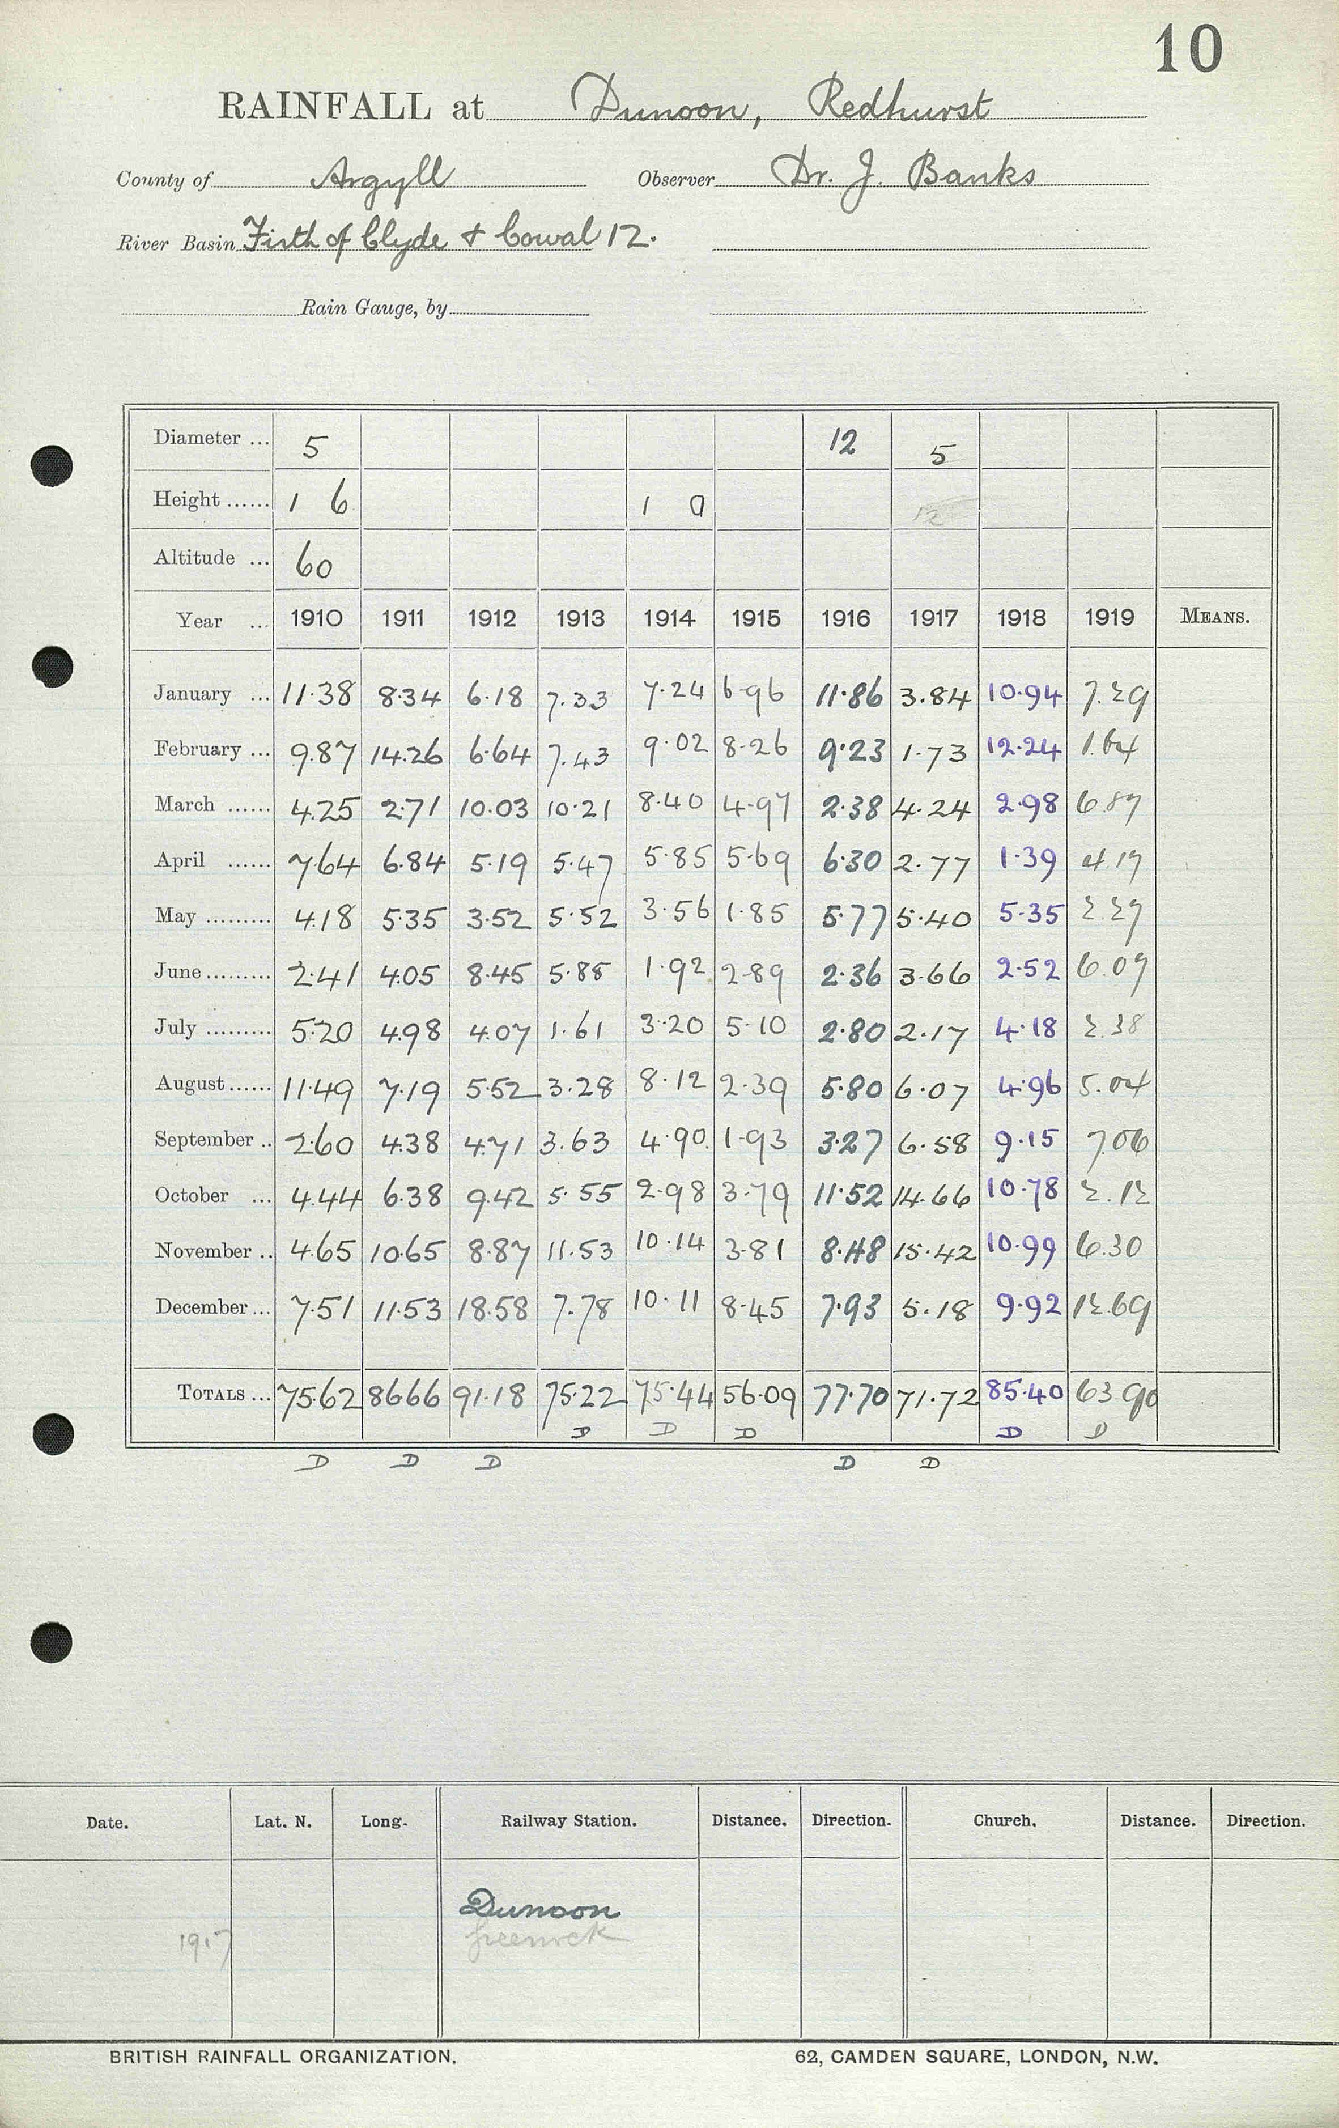 10
RAINFALL at Dunoon, Redhurst
County of Argyll Observer Dr. J. Banks
River Basin Firth of Clyde & Cowal 12.
Rain Gauge, by
Diameter ... 5 12 5
Height ...... 1 6 1 0
Altitude ... 60
Year ... 1910 1911 1912 1913 1914 1915 1916 1917 1918 1919 MEANS.
January ... 11.38 8.34 6.18 7.33 7.24 6.96 11.86 3.84 10.94 7.29
February ... 9.87 14.26 6.64 7.43 9.02 8.26 9.23 1.73 12.24 1.64
March ...... 4.25 2.71 10.03 10.21 8.40 4.97 2.38 4.24 2.98 6.87
April ...... 7.64 6.84 5.19 5.47 5.85 5.69 6.30 2.77 1.39 4.17
May ......... 4.18 5.35 3.52 5.52 3.56 1.85 5.77 5.40 5.35 2.27
June ......... 2.41 4.05 8.45 5.88 1.92 2.89 2.36 3.66 2.52 6.07
July ......... 5.20 4.98 4.07 1.61 3.20 5.10 2.80 2.17 4.18 2.38
August ...... 11.49 7.19 5.52 3.28 8.12 2.39 5.80 6.07 4.96 5.04
September .. 2.60 4.38 4.71 3.63 4.90 1.93 3.27 6.58 9.15 7.06
October ... 4.44 6.38 9.42 5.55 2.98 3.79 11.52 14.66 10.78 2.12
November .. 4.65 10.65 8.87 11.53 10.14 3.81 8.48 15.42 10.99 6.30
December ... 7.51 11.53 18.58 7.78 10.11 8.45 7.93 5.18 9.92 12.69
TOTALS ... 75.62 86.66 91.18 75.22 75.44 56.09 77.70 71.72 85.40 63.90
D D D D D
D D D D D
Date. Lat. N. Long. Railway Station. Distance. Direction. Church. Distance. Direction.
Dunoon
1917 Greenock
BRITISH RAINFALL ORGANIZATION. 62, CAMDEN SQUARE, LONDON, N.W.